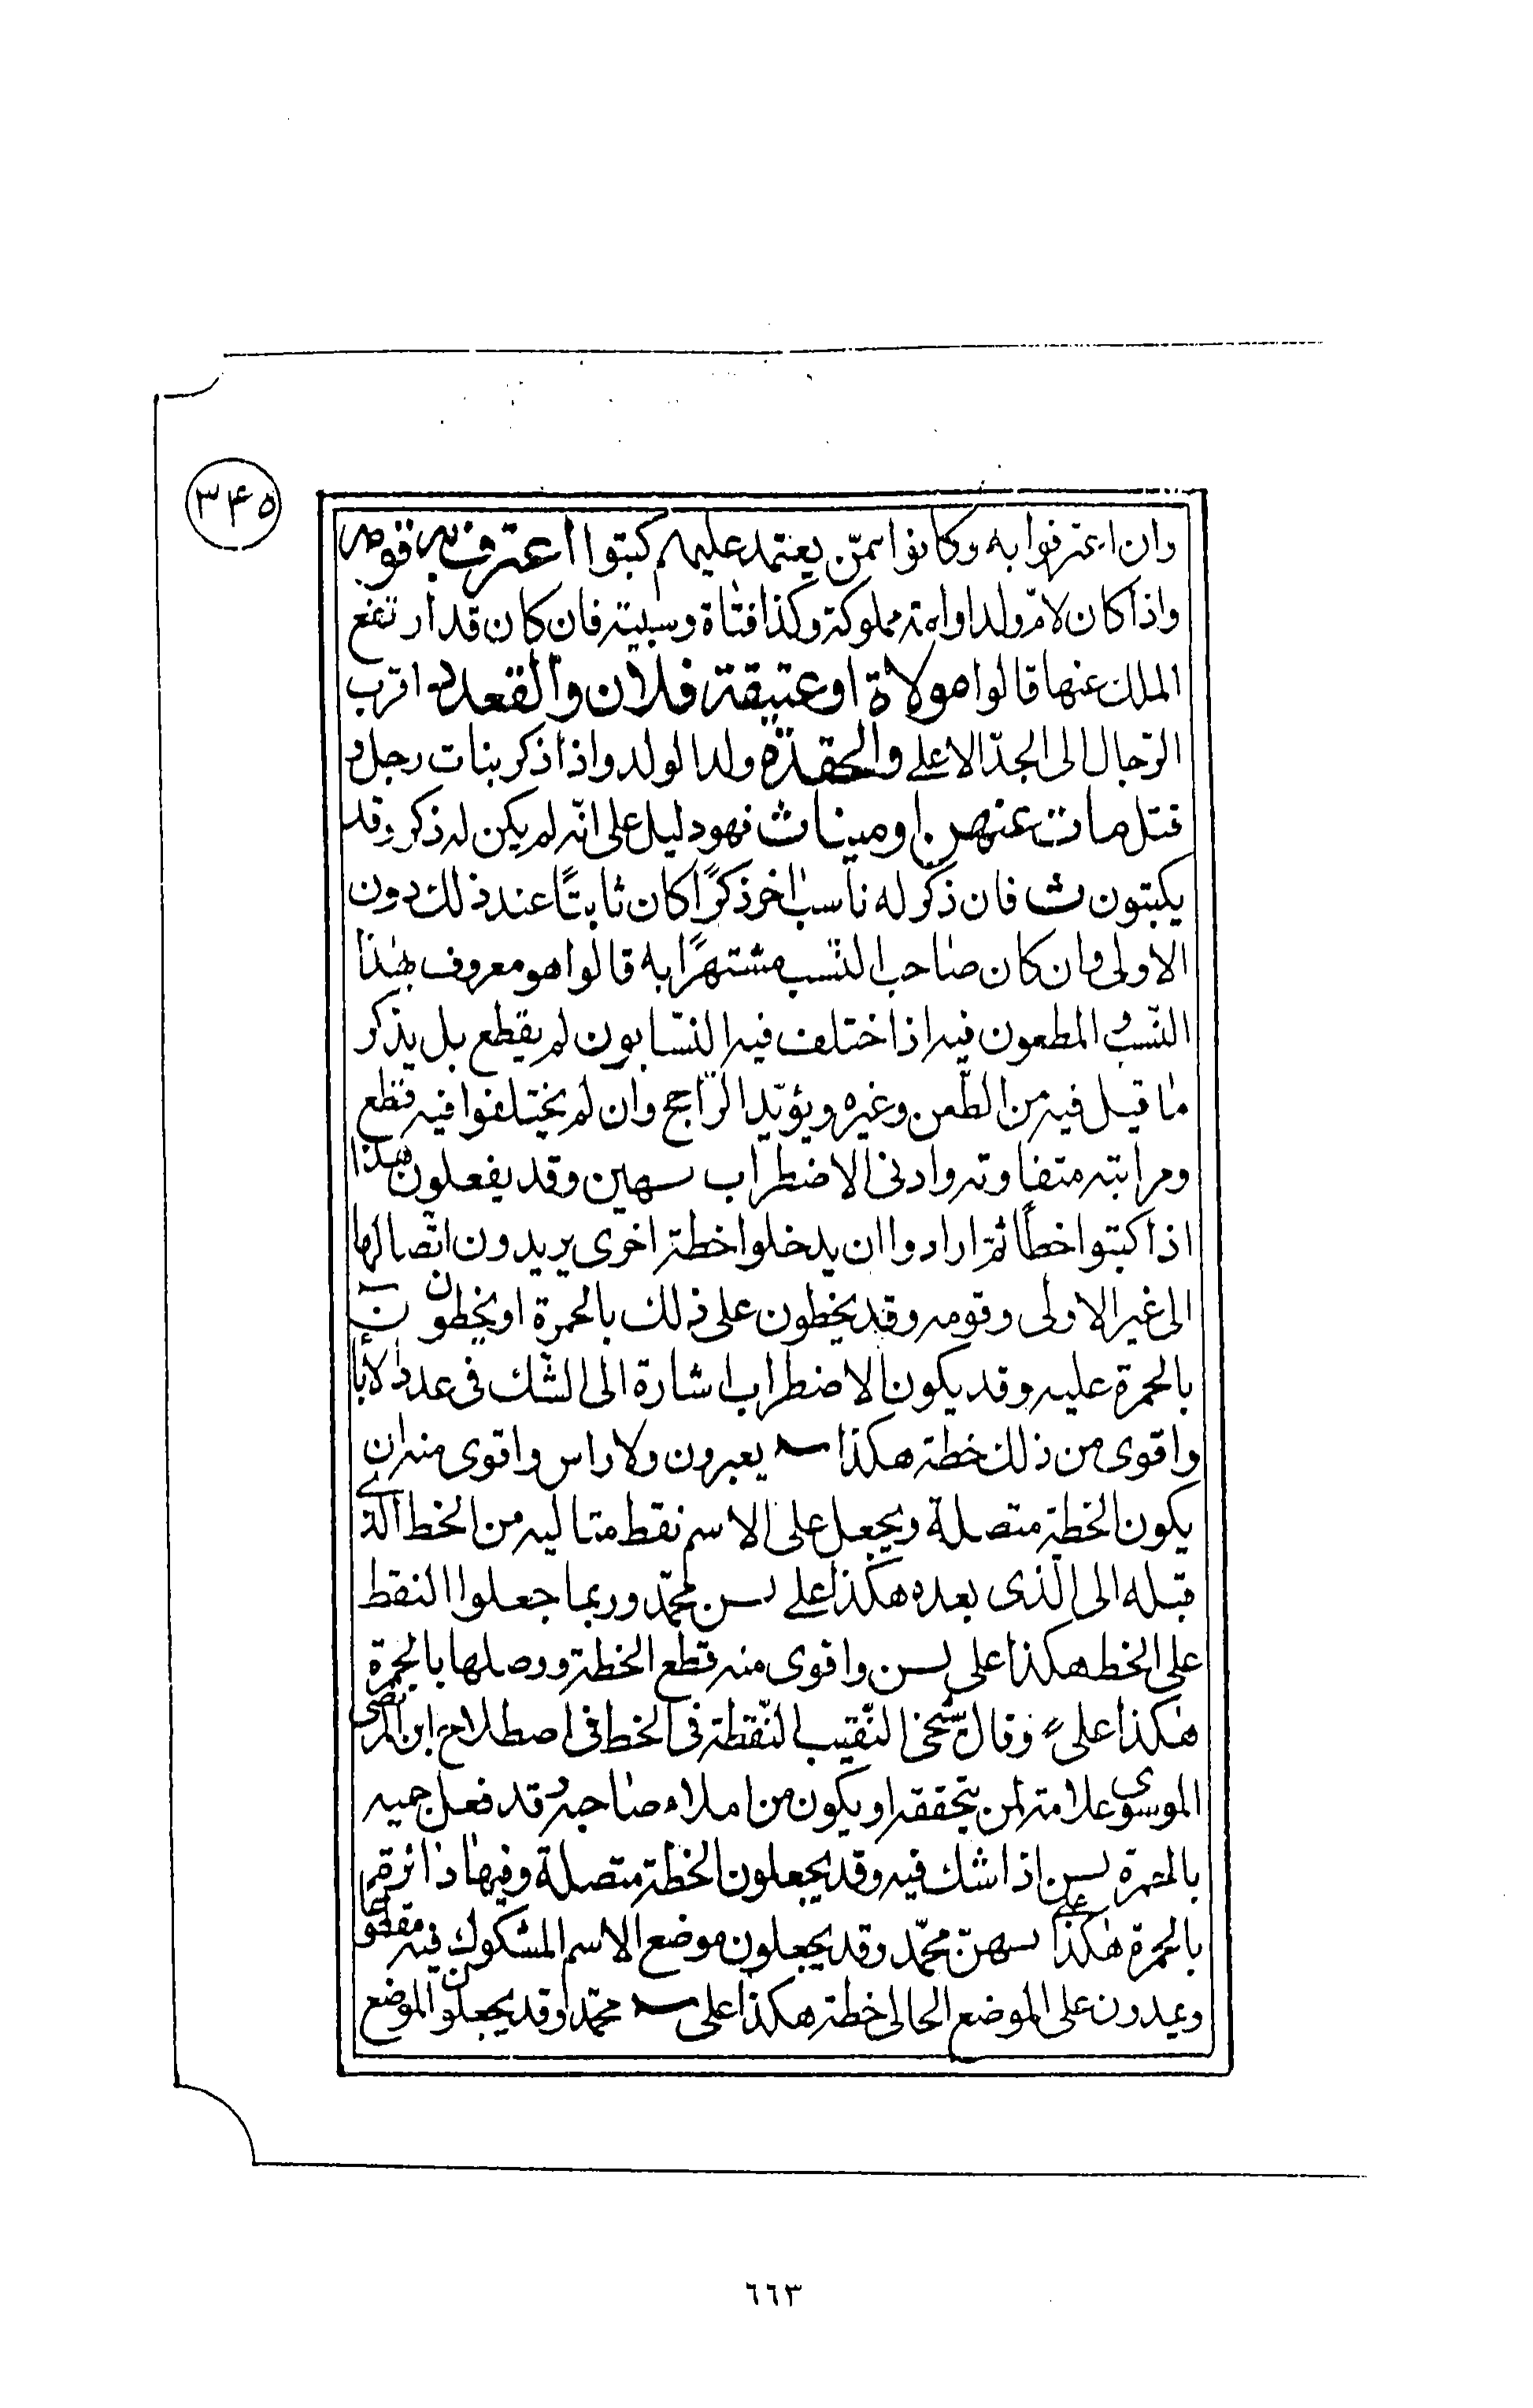 ٣۴۵
وان اعترفوا به وكانوا ممّن يعتمد عليهم كتبوا اعترف به قومه
واذا كان لامّ ولد او امة مملوكة وكذا فتاة وسبية فان كان قد ارتفع
الملك عنها قالوا مولاة او عتيقة فلان والقعدد اقرب
الرّجال الى الجدّ الاعلى والحفدة ولد الولد واذا ذكر بنات رجل و
قتل مات عنهن او ميناث فهو دليل على انّه لم يكن له ذكر وقد
يكتبون ث فان ذكر له ناسب اخر ذكرًا كان ثابتًا عند ذلك دون
الاولى فان كان صاحب النّسب مشتهرًا به قالوا هو معروف بهذا
النّسب و المطعون فيه اذا اختلف فيه النسّابون لم يقطع بل يذكر
ما قيل فيه من الطّعن وغيره ويؤيّد الرّاجح وان لم يختلفوا فيه قطع
ومراتبه متفاوته وادنى الاضطراب سهين وقد يفعلون هذا
اذا كتبوا خطًّا ثمّ ارادوا ان يدخلوا خطة اخرى يريدون اتّصالها
الى غير الاولى وقومه وقد يخطون على ذلك بالحمرة او يخطون ن
بالحمرة عليه وقد يكون الاضطراب اشارة الى الشّك فى عدد الأبا
واقوى من ذلك خطة هكذا يعبرون ولا راس واقوى منه ان
يكون الخطة متصلة ويجعل على الاسم نقط متاليه من الخط الذى
قبله الى الّذى بعده هكذا على بسن محمّد وربما جعلوا النقط
على الخط هكذا على بسن واقوى منه قطع الخطة ووصلها بالحمرة
هكذا على وقال شيخى النّقيب النّقطة فى الخط فى اصطلاح ابن المرتضى
الموسوى علامة لمن يتحققه او يكون من املاء صاحبه و قد فعل جميه
بالحمرة بسن اذا شك فيه وقد يجعلون الخطة متصلة وفيها دائرة
بالحمرة هكذا على سهن محمّد وقد يجعلون موضع الاسم المشكوك فيه مقطوعا
ويمدون على الموضع الخالى خطة هكذا على محمّد وقد يجعلون الموضع
٦٦٣